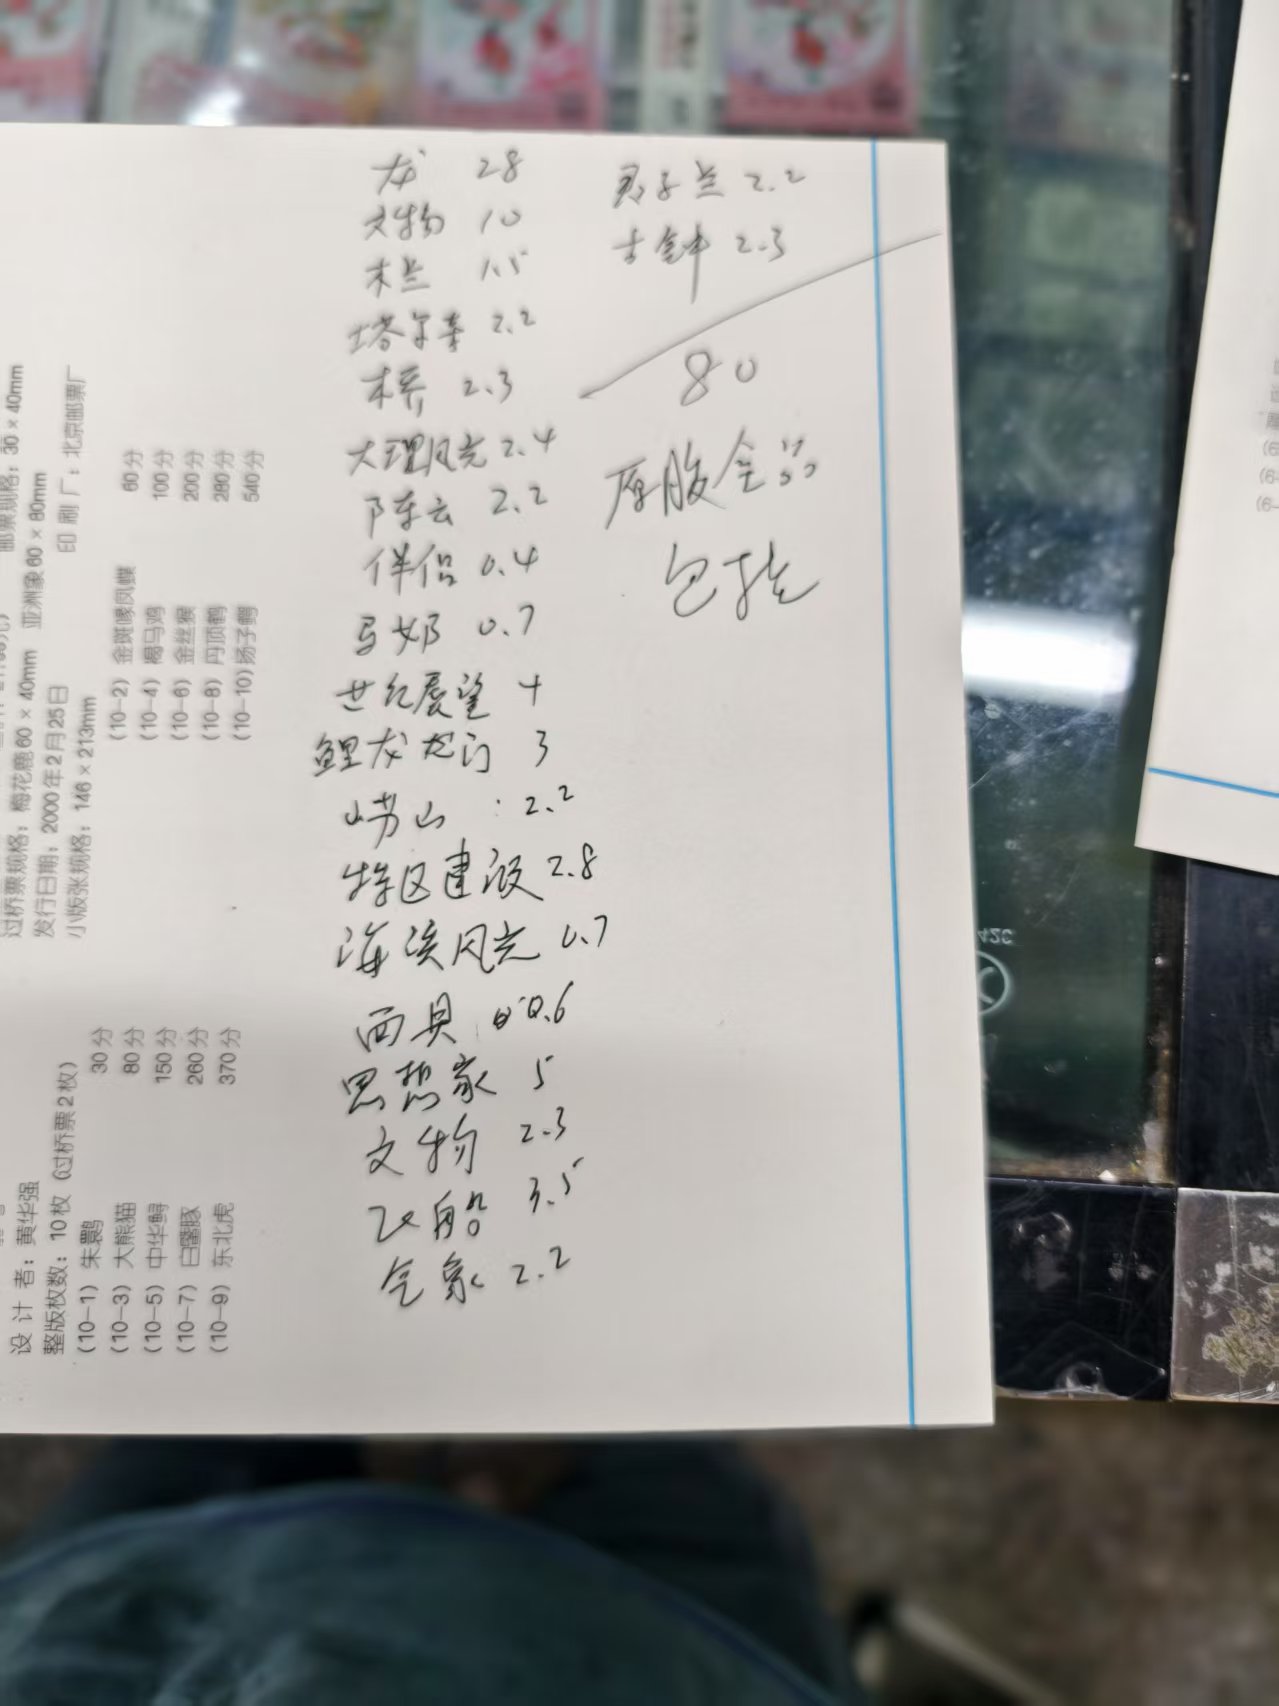 龙 28
文物 10
木兰 1.5
塔尔寺 2.2
木桥 2.3
大理风光 2.4
陈云 2.2
伴侣 0.4
马奶 0.7
世纪展望 4
鲤龙龙门 3
崂山 : 2.2
特区建设 2.8
海滨风光 0.7
面具 0.6
思想家 5
文物 2.3
飞船 3.5
气象 2.2
君子兰 2.2
古钟 2.3
80
原胶全品
包挂
邮票规格: 30×40mm
过桥票规格: 梅花鹿60×40mm 亚洲象60×80mm
发行日期: 2000年2月25日
印刷厂: 北京邮票厂
小版张规格: 146×213mm
设计者: 黄华强
整版枚数: 10枚 (过桥票2枚)
(10-1) 朱鹮 30分
(10-2) 金斑喙凤蝶 60分
(10-3) 大熊猫 80分
(10-4) 褐马鸡 100分
(10-5) 中华鲟 150分
(10-6) 金丝猴 200分
(10-7) 白鱀豚 260分
(10-8) 丹顶鹤 280分
(10-9) 东北虎 370分
(10-10) 扬子鳄 540分